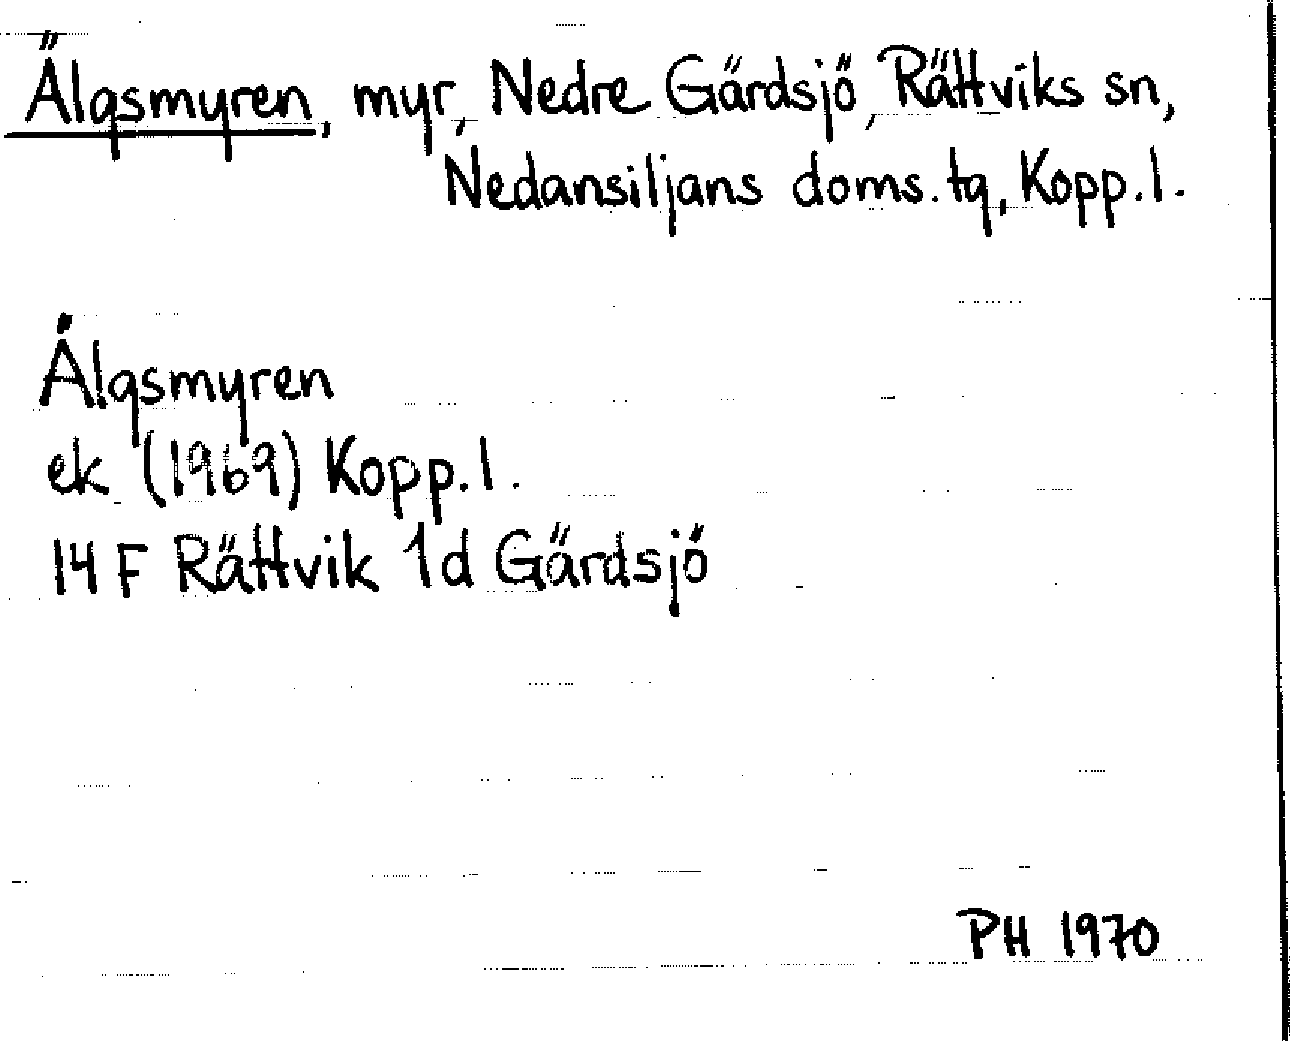 Älgsmyren, myr, Nedre Gärdsjö, Rättviks sn,
Nedansiljans doms. tg, Kopp. l.
Älgsmyren
ek (1969) Kopp. l.
14 F Rättvik 1d Gärdsjö
PH 1970